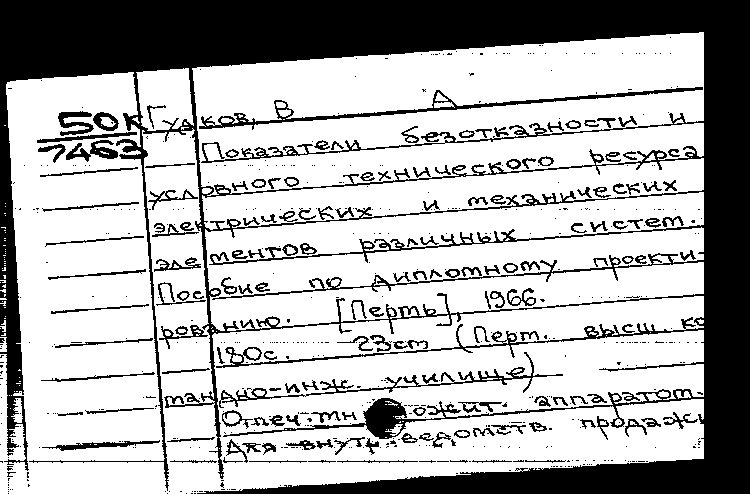 50К Гудков, В А
7463
Показатели безотказности и
условного технического ресурса
электрических и механических
элементов различных систем.
Пособие по дипломному проекти-
рованию. [Пермь], 1966.
180с. 23см (Перм. высш. ко
мандно-инж. училище)
Отпеч. мн ожит. аппаратом.
Для внутриведомств. продажи